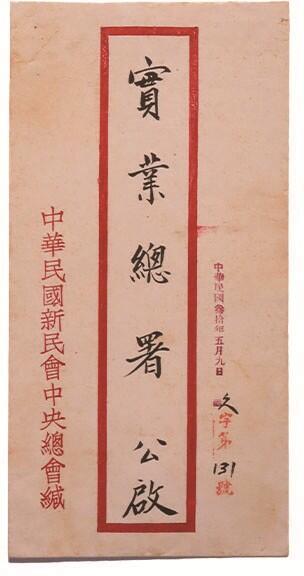 中華民國叁拾年五月九日
久字第131號
實業總署 公啟
中華民國新民會中央總會緘